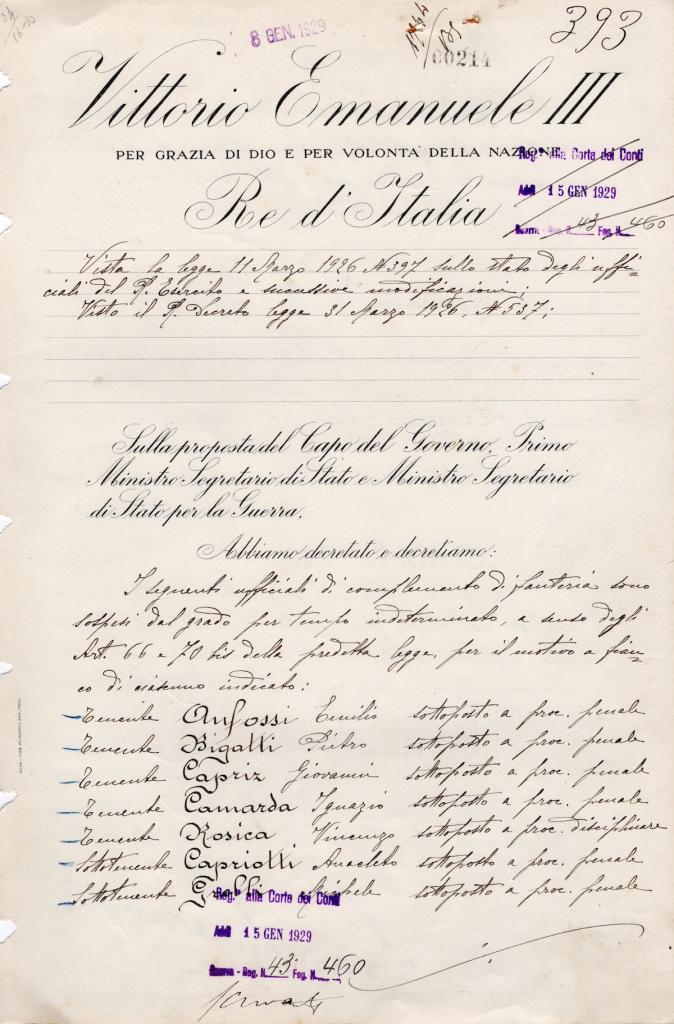 8 GEN. 1929
00214
393
Vittorio Emanuele III
PER GRAZIA DI DIO E PER VOLONTÀ DELLA NAZIONE
Reg.to alla Corte dei Conti
Addì 15 GEN 1929
Guerra - Reg. N. 43 Fog. N. 460
Re d'Italia
Vista la legge 11 Marzo 1926 N 397 sullo stato degli uffi-
ciali del R. Esercito e successive modificazioni;
Visto il R. Decreto legge 31 Marzo 1926, N 537;
Sulla proposta del Capo del Governo, Primo
Ministro Segretario di Stato e Ministro Segretario
di Stato per la Guerra,
Abbiamo decretato e decretiamo:
I seguenti ufficiali di complemento di fanteria sono
sospesi dal grado per tempo indeterminato, a senso degli
Art. 66 e 70 bis della predetta legge, per il motivo a fian-
co di ciascuno indicato:
Tenente Anfossi Emilio sottoposto a proc. penale
Tenente Bigatti Pietro sottoposto a proc. penale
Tenente Capriz Giovanni sottoposto a proc. penale
Tenente Camarda Ignazio sottoposto a proc. penale
Tenente Rosica Vincenzo sottoposto a proc. disciplinare
Sottotenente Capriotti Anacleto sottoposto a proc. penale
Sottotenente Michele sottoposto a proc. penale
Reg.to alla Corte dei Conti
Addì 15 GEN 1929
Guerra - Reg. N. 43 Fog. N. 460